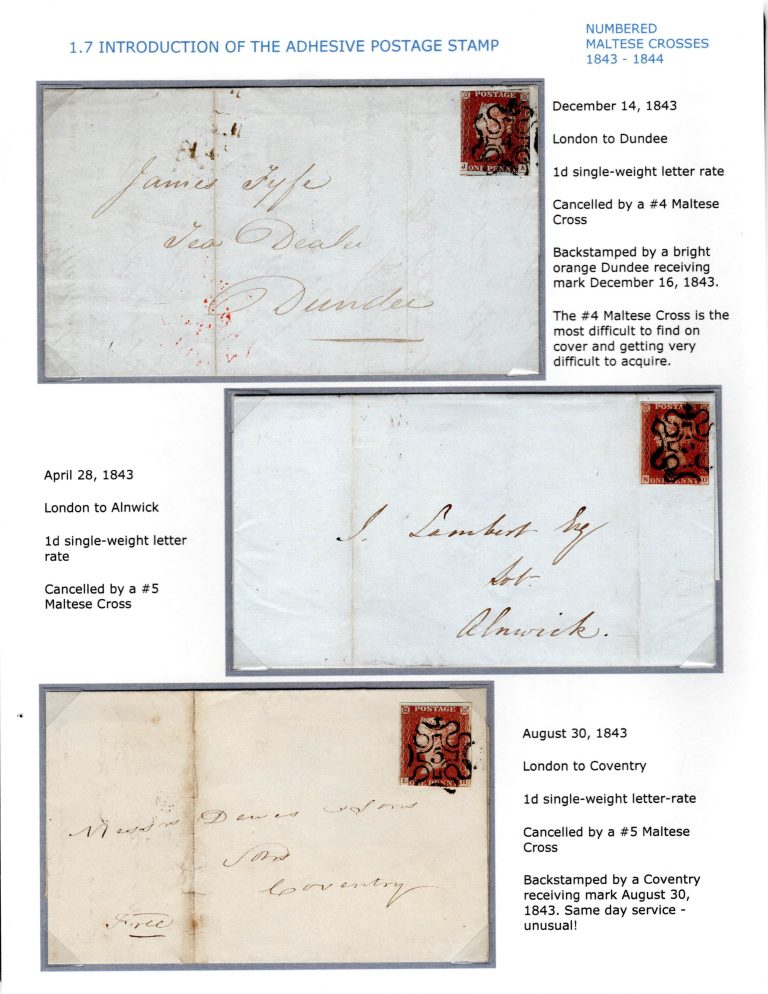 1.7 INTRODUCTION OF THE ADHESIVE POSTAGE STAMP
NUMBERED
MALTESE CROSSES
1843 - 1844
POSTAGE
J
ONE PENNY
James Fyfe
Tea Dealer
Dundee
December 14, 1843
London to Dundee
1d single-weight letter rate
Cancelled by a #4 Maltese
Cross
Backstamped by a bright
orange Dundee receiving
mark December 16, 1843.
The #4 Maltese Cross is the
most difficult to find on
cover and getting very
difficult to acquire.
April 28, 1843
London to Alnwick
1d single-weight letter
rate
Cancelled by a #5
Maltese Cross
POSTAGE
ONE PENNY
5
J. Lambert Esq
Alnwick.
POSTAGE
ONE PENNY
5
Messrs Dewes & Sons
Coventry
Free
August 30, 1843
London to Coventry
1d single-weight letter-rate
Cancelled by a #5 Maltese
Cross
Backstamped by a Coventry
receiving mark August 30,
1843. Same day service -
unusual!